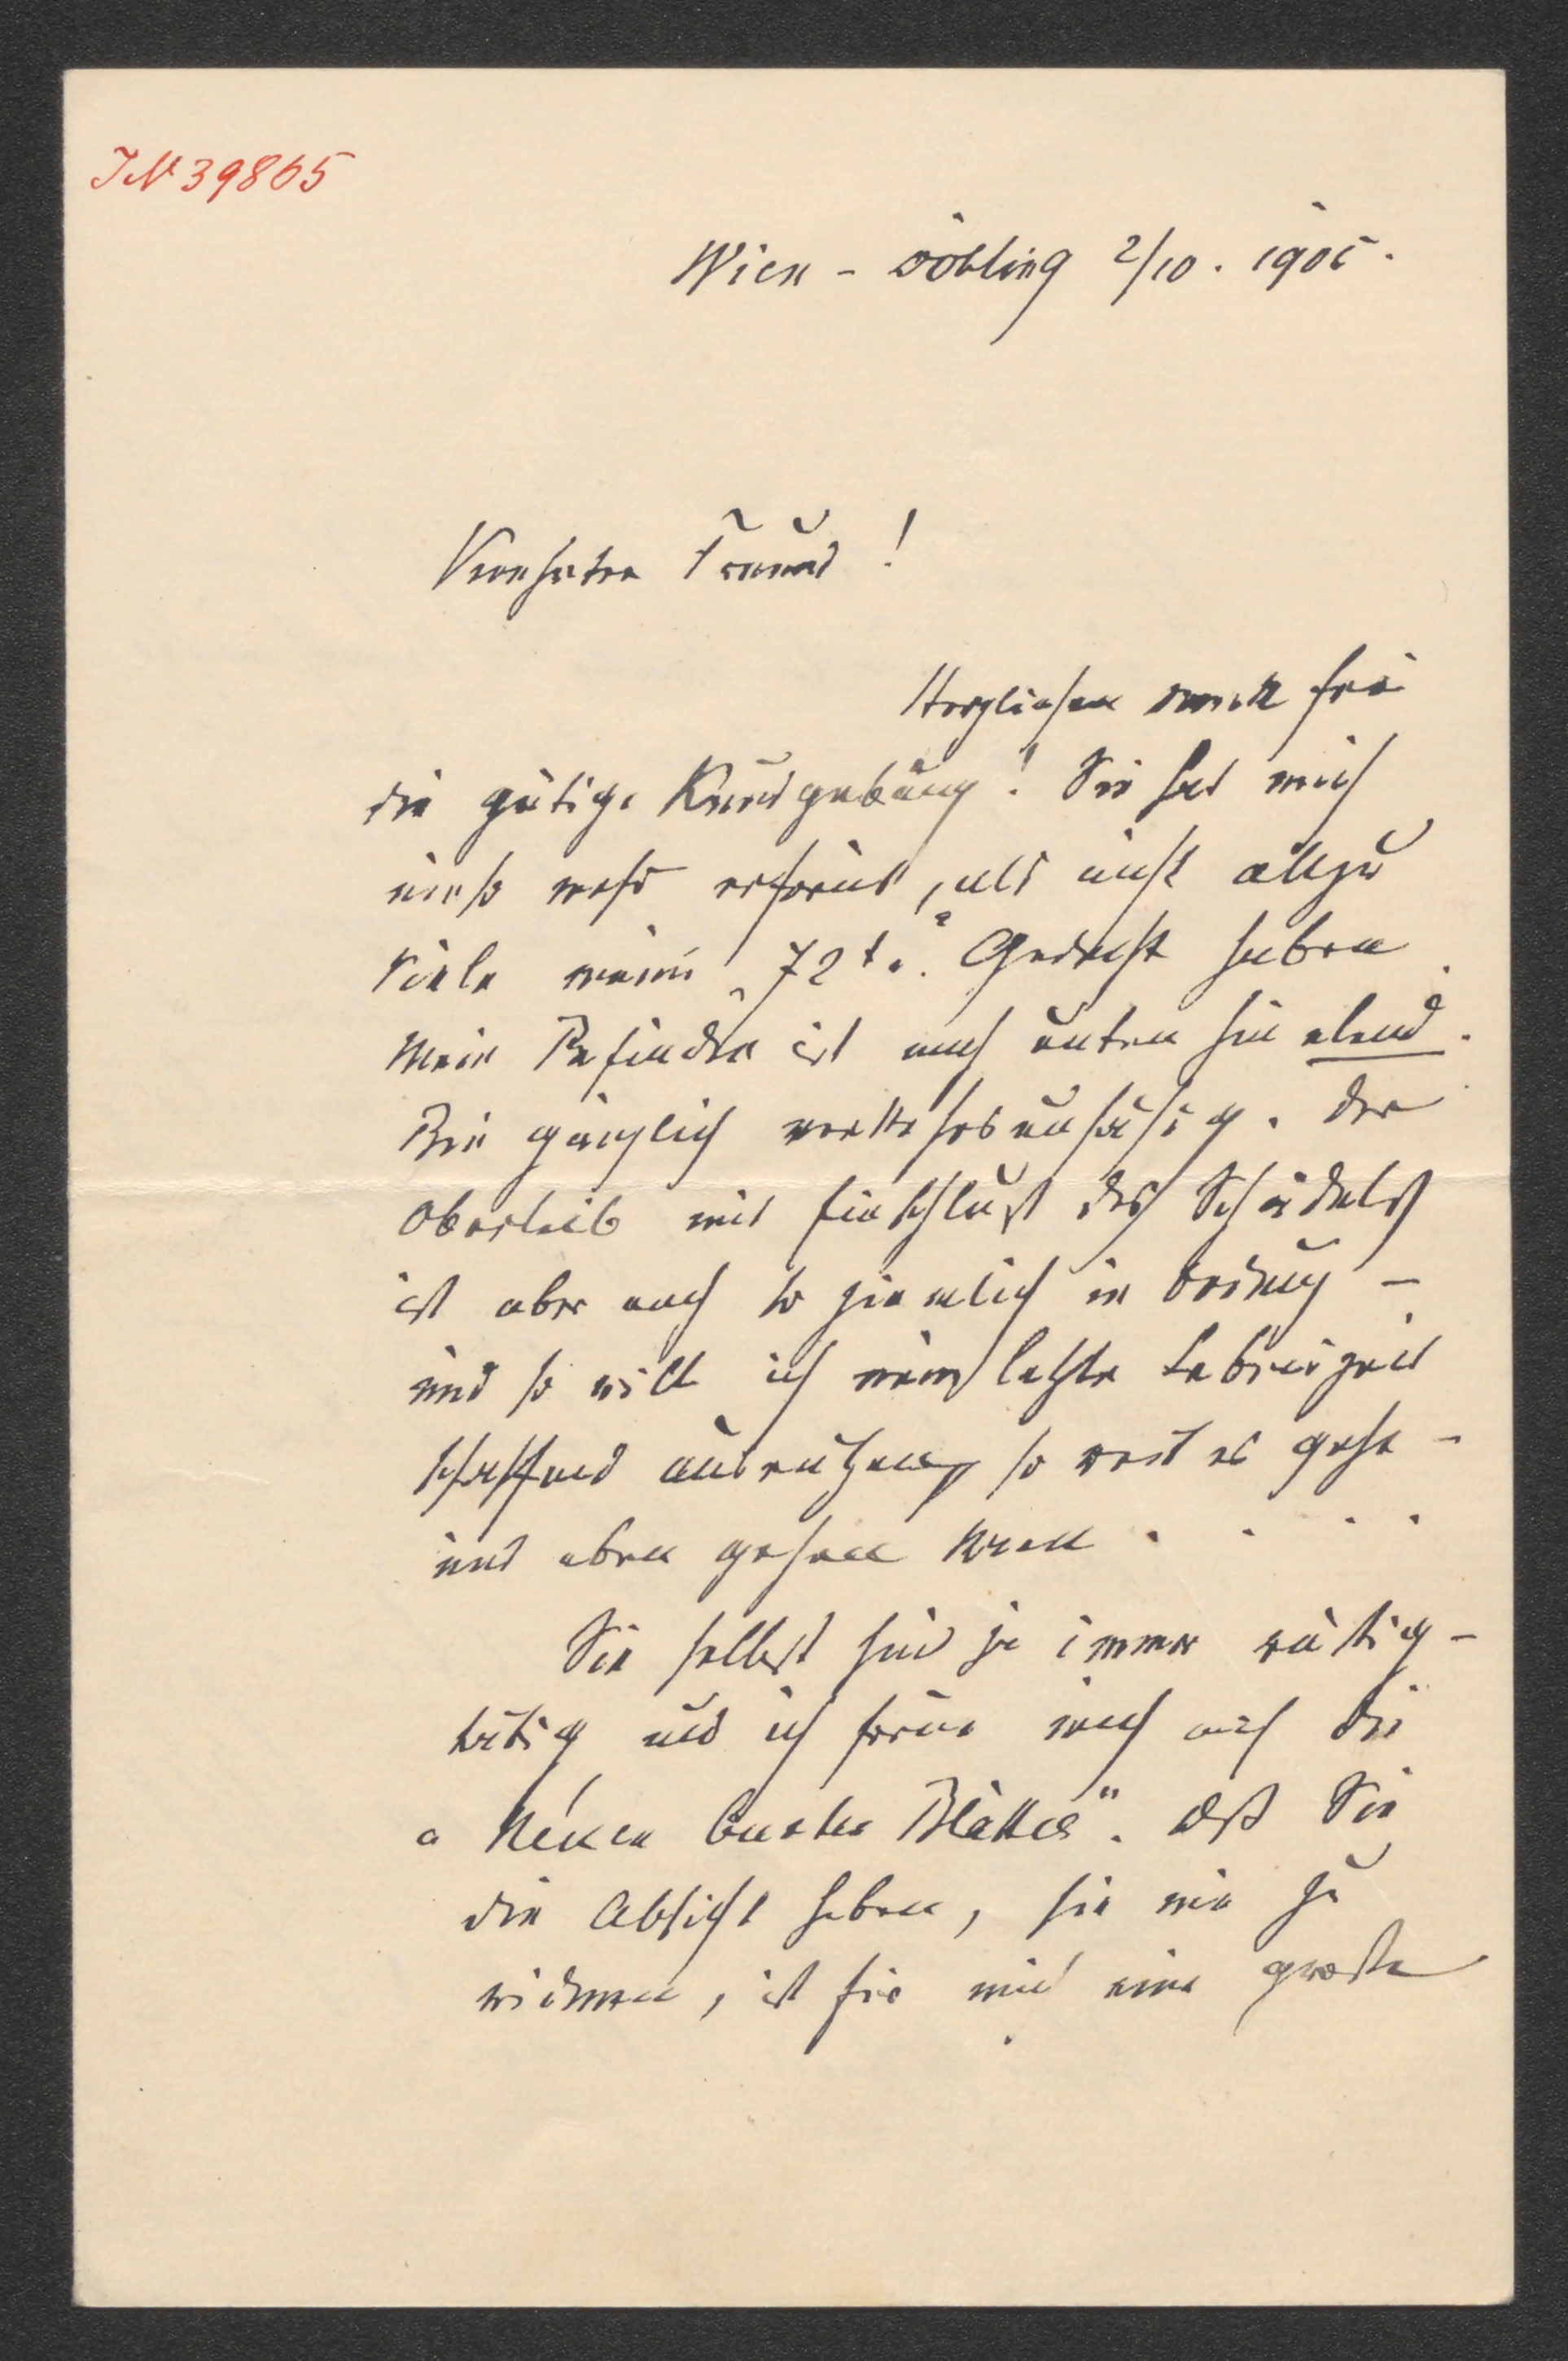 IN 39865
Wien - Döbling 2/10. 1905.
Verehrter Freund!
Herzlichen Dank für
die gütige Kundgebung! Sie hat mich
um so mehr erfreut, als nicht allzu
Viele meines 72t. Gedacht haben.
Mein Befinden ist nach unten hin elend.
Bin gänzlich verkehrsunfähig. Der
Oberleib mit Einschluß des Schädels
ist aber noch so ziemlich in Ordnung –
und so will ich meine letzte Lebenszeit
schaffend ausnützen, so weit es geht –
und eben gehen kann . . . .
Sie selbst sind ja immer rüstig –
tätig und ich freue mich auf die
„Neuen bunten Blätter". Daß Sie
die Absicht haben, sie mir zu
widmen, ist für mich eine große